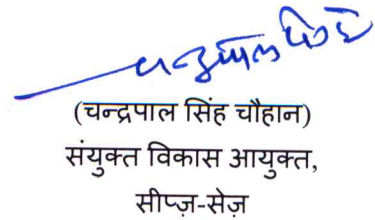 चन्द्रपाल सिंह
(चन्द्रपाल सिंह चौहान)
संयुक्त विकास आयुक्त,
सीप्ज़-सेज़